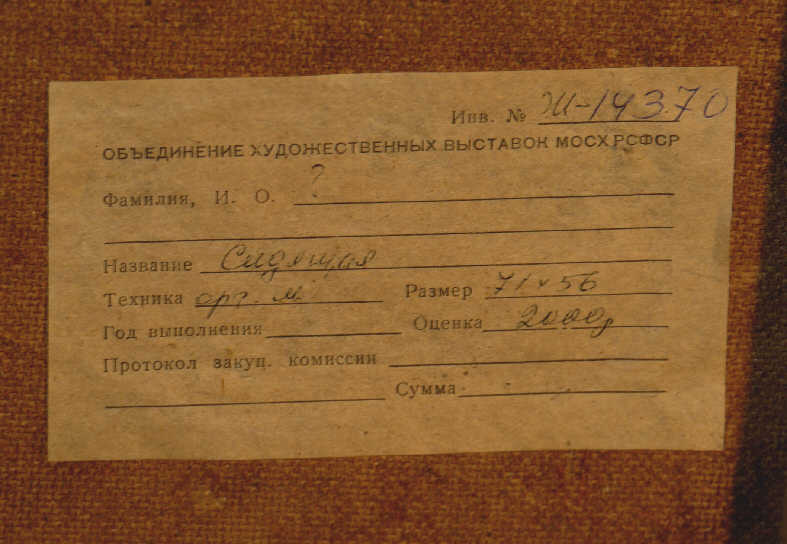 Инв. № Ж-14370
ОБЪЕДИНЕНИЕ ХУДОЖЕСТВЕННЫХ ВЫСТАВОК МОСХ РСФСР
Фамилия, И. О. ?
Название Сидящая
Техника орг. м. Размер 71 x 56
Год выполнения Оценка 2000р
Протокол закуп. комиссии
Сумма